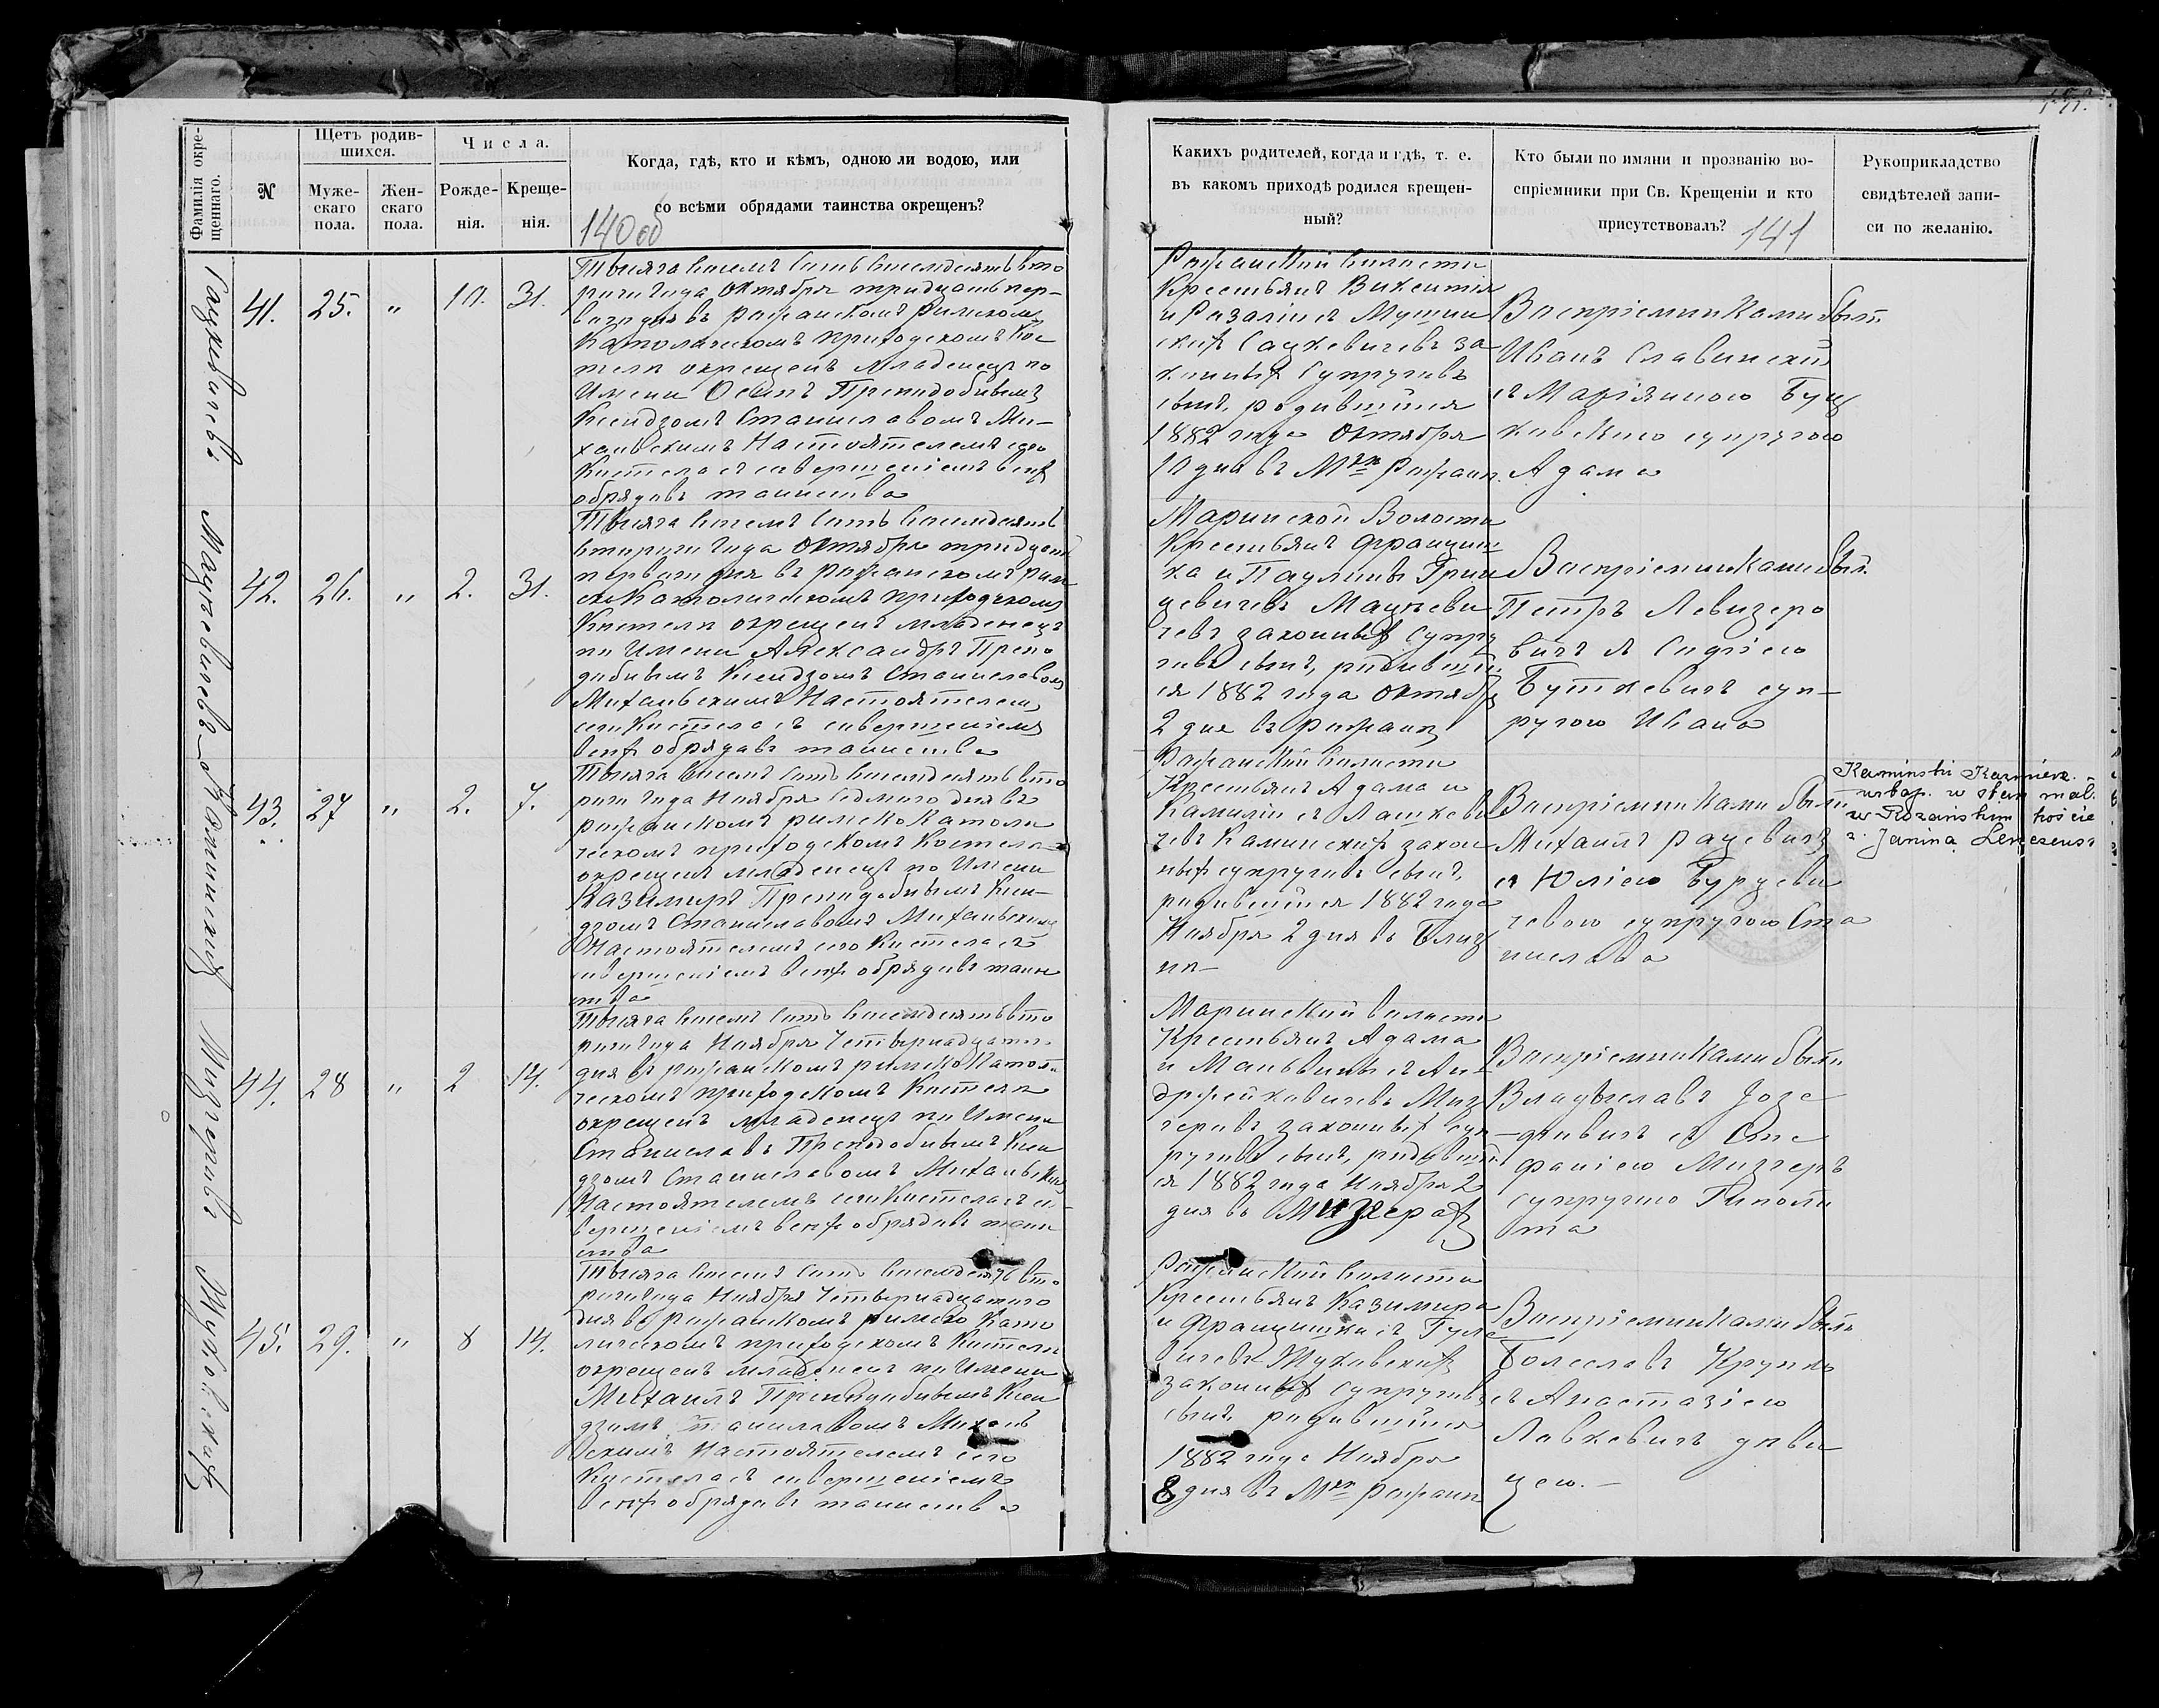 Фамилія окре-
щеннаго.
№
Щетъ родив-
шихся.
Муже-
скаго
пола.
Жен-
скаго
пола.
Числа.
Рожде-
нія.
Креще-
нія.
Когда, гдѣ, кто и кѣмъ, одною ли водою, или
со всѣми обрядами таинства окрещенъ?
140 об
Сацкевичевъ
41.
25.
"
10.
31.
Тысяча восемь сотъ восемдесятъ вто
рого года Октября тридцать пер-
ваго дня въ Рожанскомъ Римско
Католическомъ приходскомъ Кос
телѣ окрещенъ младенецъ по
имени Осипъ Преподобнымъ
Ксендзомъ Станиславомъ Ми-
хальскимъ Настоятелемъ сего
Костела съ совершеніемъ всѣхъ
обрядовъ таинства
Мацкевичевъ
42.
26.
"
2.
31.
Тысяча восемь сотъ восемдесятъ
второго года Октября тридцать
перваго дня въ Рожанскомъ Рим
ско Католическомъ приходскомъ
Костелѣ окрещенъ младенецъ
по имени Александръ Препо
добнымъ Ксендзомъ Станиславомъ
Михальскимъ Настоятелемъ
сего Костела съ совершеніемъ
всѣхъ обрядовъ таинства
Каминскихъ
43.
27
"
2.
7.
Тысяча восемь сотъ восемдесятъ вто
рого года Ноября седмого дня въ
Рожанскомъ римско Католи
ческомъ приходскомъ Костелѣ
окрещенъ младенецъ по имени
Казимиръ Преподобнымъ Ксен-
дзомъ Станиславомъ Михальскимъ
Настоятелемъ сего Костела съ
совершеніемъ всѣхъ обрядовъ таин
ства
Мизгеровъ
44.
28
"
2
14.
Тысяча восемь сотъ восемдесятъ вто
рого года Ноября четырнадцатого
дня въ Рожанскомъ римско Катол
ческомъ приходскомъ Костелѣ
окрещенъ младенецъ по имени
Станиславъ Преподобнымъ Ксен
дзомъ Станиславомъ Михальским
Настоятелемъ сего Костела съ со-
вершеніемъ всѣхъ обрядовъ таин
ства
Жуковскихъ
45.
29.
"
8
14.
Тысяча восемь сотъ восемдесятъ вто
рого года Ноября четырнадцатого
дня въ Рожанскомъ римско Като
лическомъ приходскомъ Костелѣ
окрещенъ младенецъ по имени
Михаилъ Преподобнымъ Ксен
дзомъ Станиславомъ Михаль
скимъ Настоятелемъ сего
Костела съ совершеніемъ
всѣхъ обрядовъ таинства
Какихъ родителей, когда и гдѣ, т. е.
въ какомъ приходѣ родился крещен-
ный?
Кто были по имяни и прозванію во-
спріемники при Св. Крещеніи и кто
присутствовалъ?
141
Рукоприкладство
свидѣтелей запи-
си по желанію.
Рожанской волости
Крестьянъ Викентія
и Розаліи съ Мушин
скихъ Сацкевичевъ за
конныхъ супруговъ
сынъ, родившійся
1882 года Октября
10 дня въ Мѣк Рожанѣ
Воспріемниками были
Иванъ Славинскій
съ Маріянною Буц
ковскою супругою
Адама
Маринской Волости
Крестьянъ Франциш
ка и Паулины Грин
цевичевъ Мацкеви
чевъ законныхъ супру
говъ сынъ, родившій
ся 1882 года Октября
2 дня въ Рожанѣ
Воспріемниками был.
Петръ Левизеро
вичъ съ Софіею
Буткевичъ суп-
ругою Ивана
Рожанской волости
Крестьянъ Адама и
Камиліи съ Лашкеви
чевъ Каминскихъ закон
ныхъ супруговъ сынъ,
родившійся 1882 года
Ноября 2 дня въ Близ
нѣ-
Воспріемниками были
Михаилъ Рацевичъ
съ Юліею Бурдеви
чевою супругою Ста
нислава
Kaminski Kazmierz.
wstąp. w stan mał.
w Różańskim kości
z Janiną
Маринской волости
Крестьянъ Адама
и Мальвины съ Ан-
држейковичевъ Миз
геровъ законныхъ суп
руговъ сынъ, родивший
ся 1882 года Ноября 2
дня въ Мизгерахъ
Воспріемниками были
Владиславъ Юзе
фовичъ съ Сте
фаніею Мизгеръ
супругою Гиполи
та
Рожанской волости
Крестьянъ Казимира
и Францишки съ Гуле
вичевъ Жуковскихъ
законныхъ супруговъ
сынъ, родившійся
1882 года Ноября
8 дня въ Мѣк Рожанѣ
Воспріемниками были
Болеславъ Крупко
съ Анастазіею
Лавкевичъ дѣви
цею.-